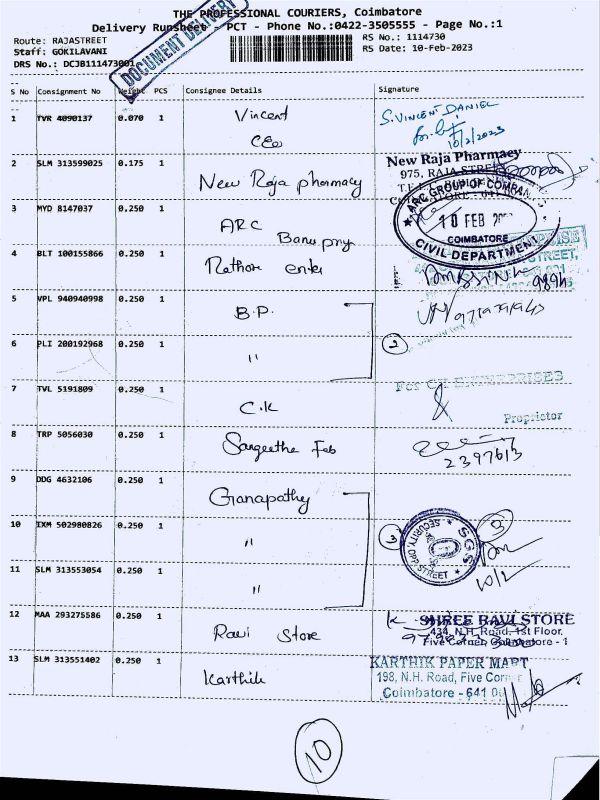 THE PROFESSIONAL COURIERS, Coimbatore
Delivery Runsheet - PCT - Phone No.:0422-3505555 - Page No.:1
Route: RAJASTREET
Staff: GOKILAVANI
DRS No.: DCJB111473001
RS No.: 1114730
RS Date: 10-Feb-2023
DOCUMENT DELIVERY
S No Consignment No Weight PCS Consignee Details Signature
1 TVR 4090137 0.070 1 Vincent
CEO
S. VINCENT DANIEL
10/2/2023
2 SLM 313599025 0.175 1 New Raja pharmacy
New Raja Pharmacy
975, RAJA STREET
3 MYD 8147037 0.250 1 ARC
ARC GROUP OF COMPANY
10 FEB
COIMBATORE
CIVIL DEPARTMENT
4 BLT 100155866 0.250 1 Rathor
STREET,
5 VPL 940940998 0.250 1 B.P.
6 PLI 200192968 0.250 1 "
2
7 TVL 5191809 0.250 1 C.K
For C.K. ENTERPRISES
Proprietor
8 TRP 5056030 0.250 1 Sangeetha
2397613
9 DDG 4632106 0.250 1 Ganapathy
10 IXM 502980826 0.250 1 "
11 SLM 313553054 0.250 1 "
3
SGS
SECURITY
STREET
10/2
12 MAA 293275586 0.250 1 Ravi Store
SHREE RAVI STORE
434, N.H. Road, 1st Floor,
Five Corner, Coimbatore - 1
13 SLM 313551402 0.250 1 Karthik
KARTHIK PAPER MART
198, N.H. Road, Five Corner
Coimbatore - 641 0
10